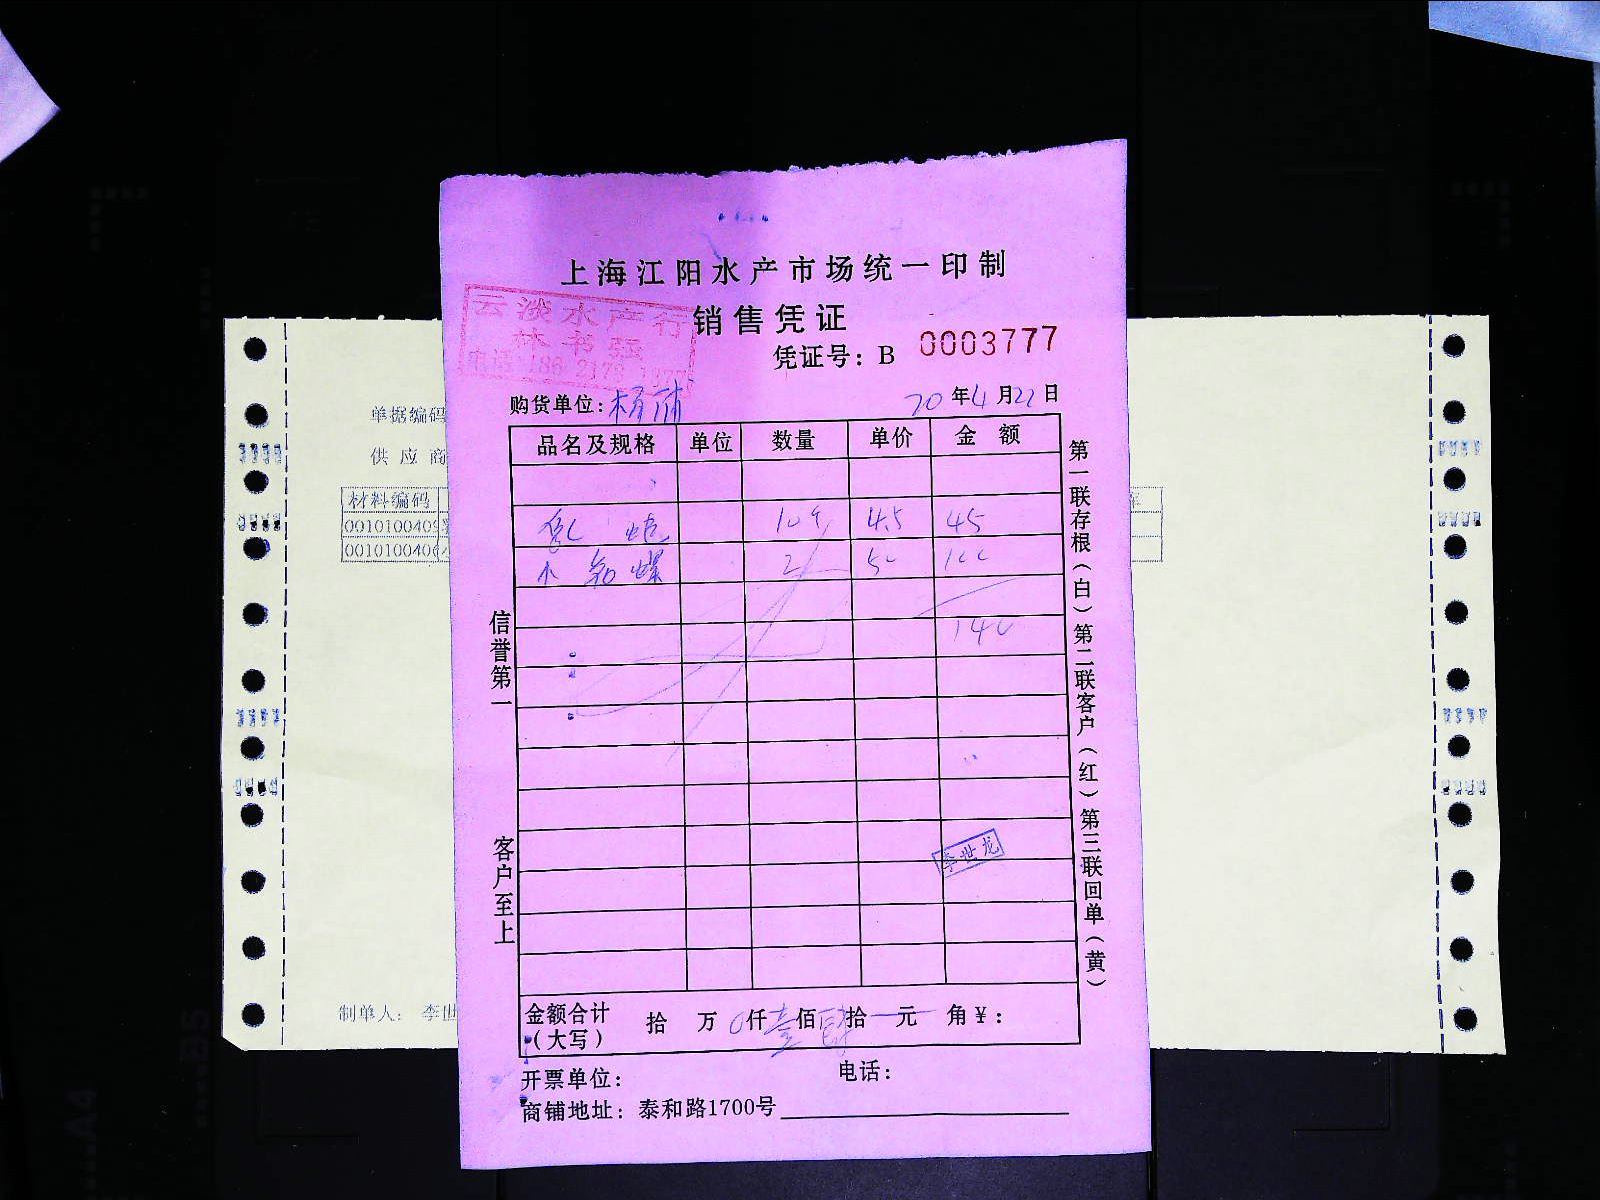 上海江阳水产市场统一印制
云淡水产行
林书强
销售凭证
凭证号：B 0003777
购货单位：杨浦
20年4月22日
品名及规格 单位 数量 单价 金额
10 4.5 45
小 螺 2 50 100
140
信誉第一
客户至上
第一联存根（白）第二联客户（红）第三联回单（黄）
李世龙
金额合计（大写） 拾 万 0仟壹佰肆拾 元 角￥：
开票单位：
电话：
商铺地址：泰和路1700号
单据编码
供应商
材料编码
0010100409
001010040
制单人：李世